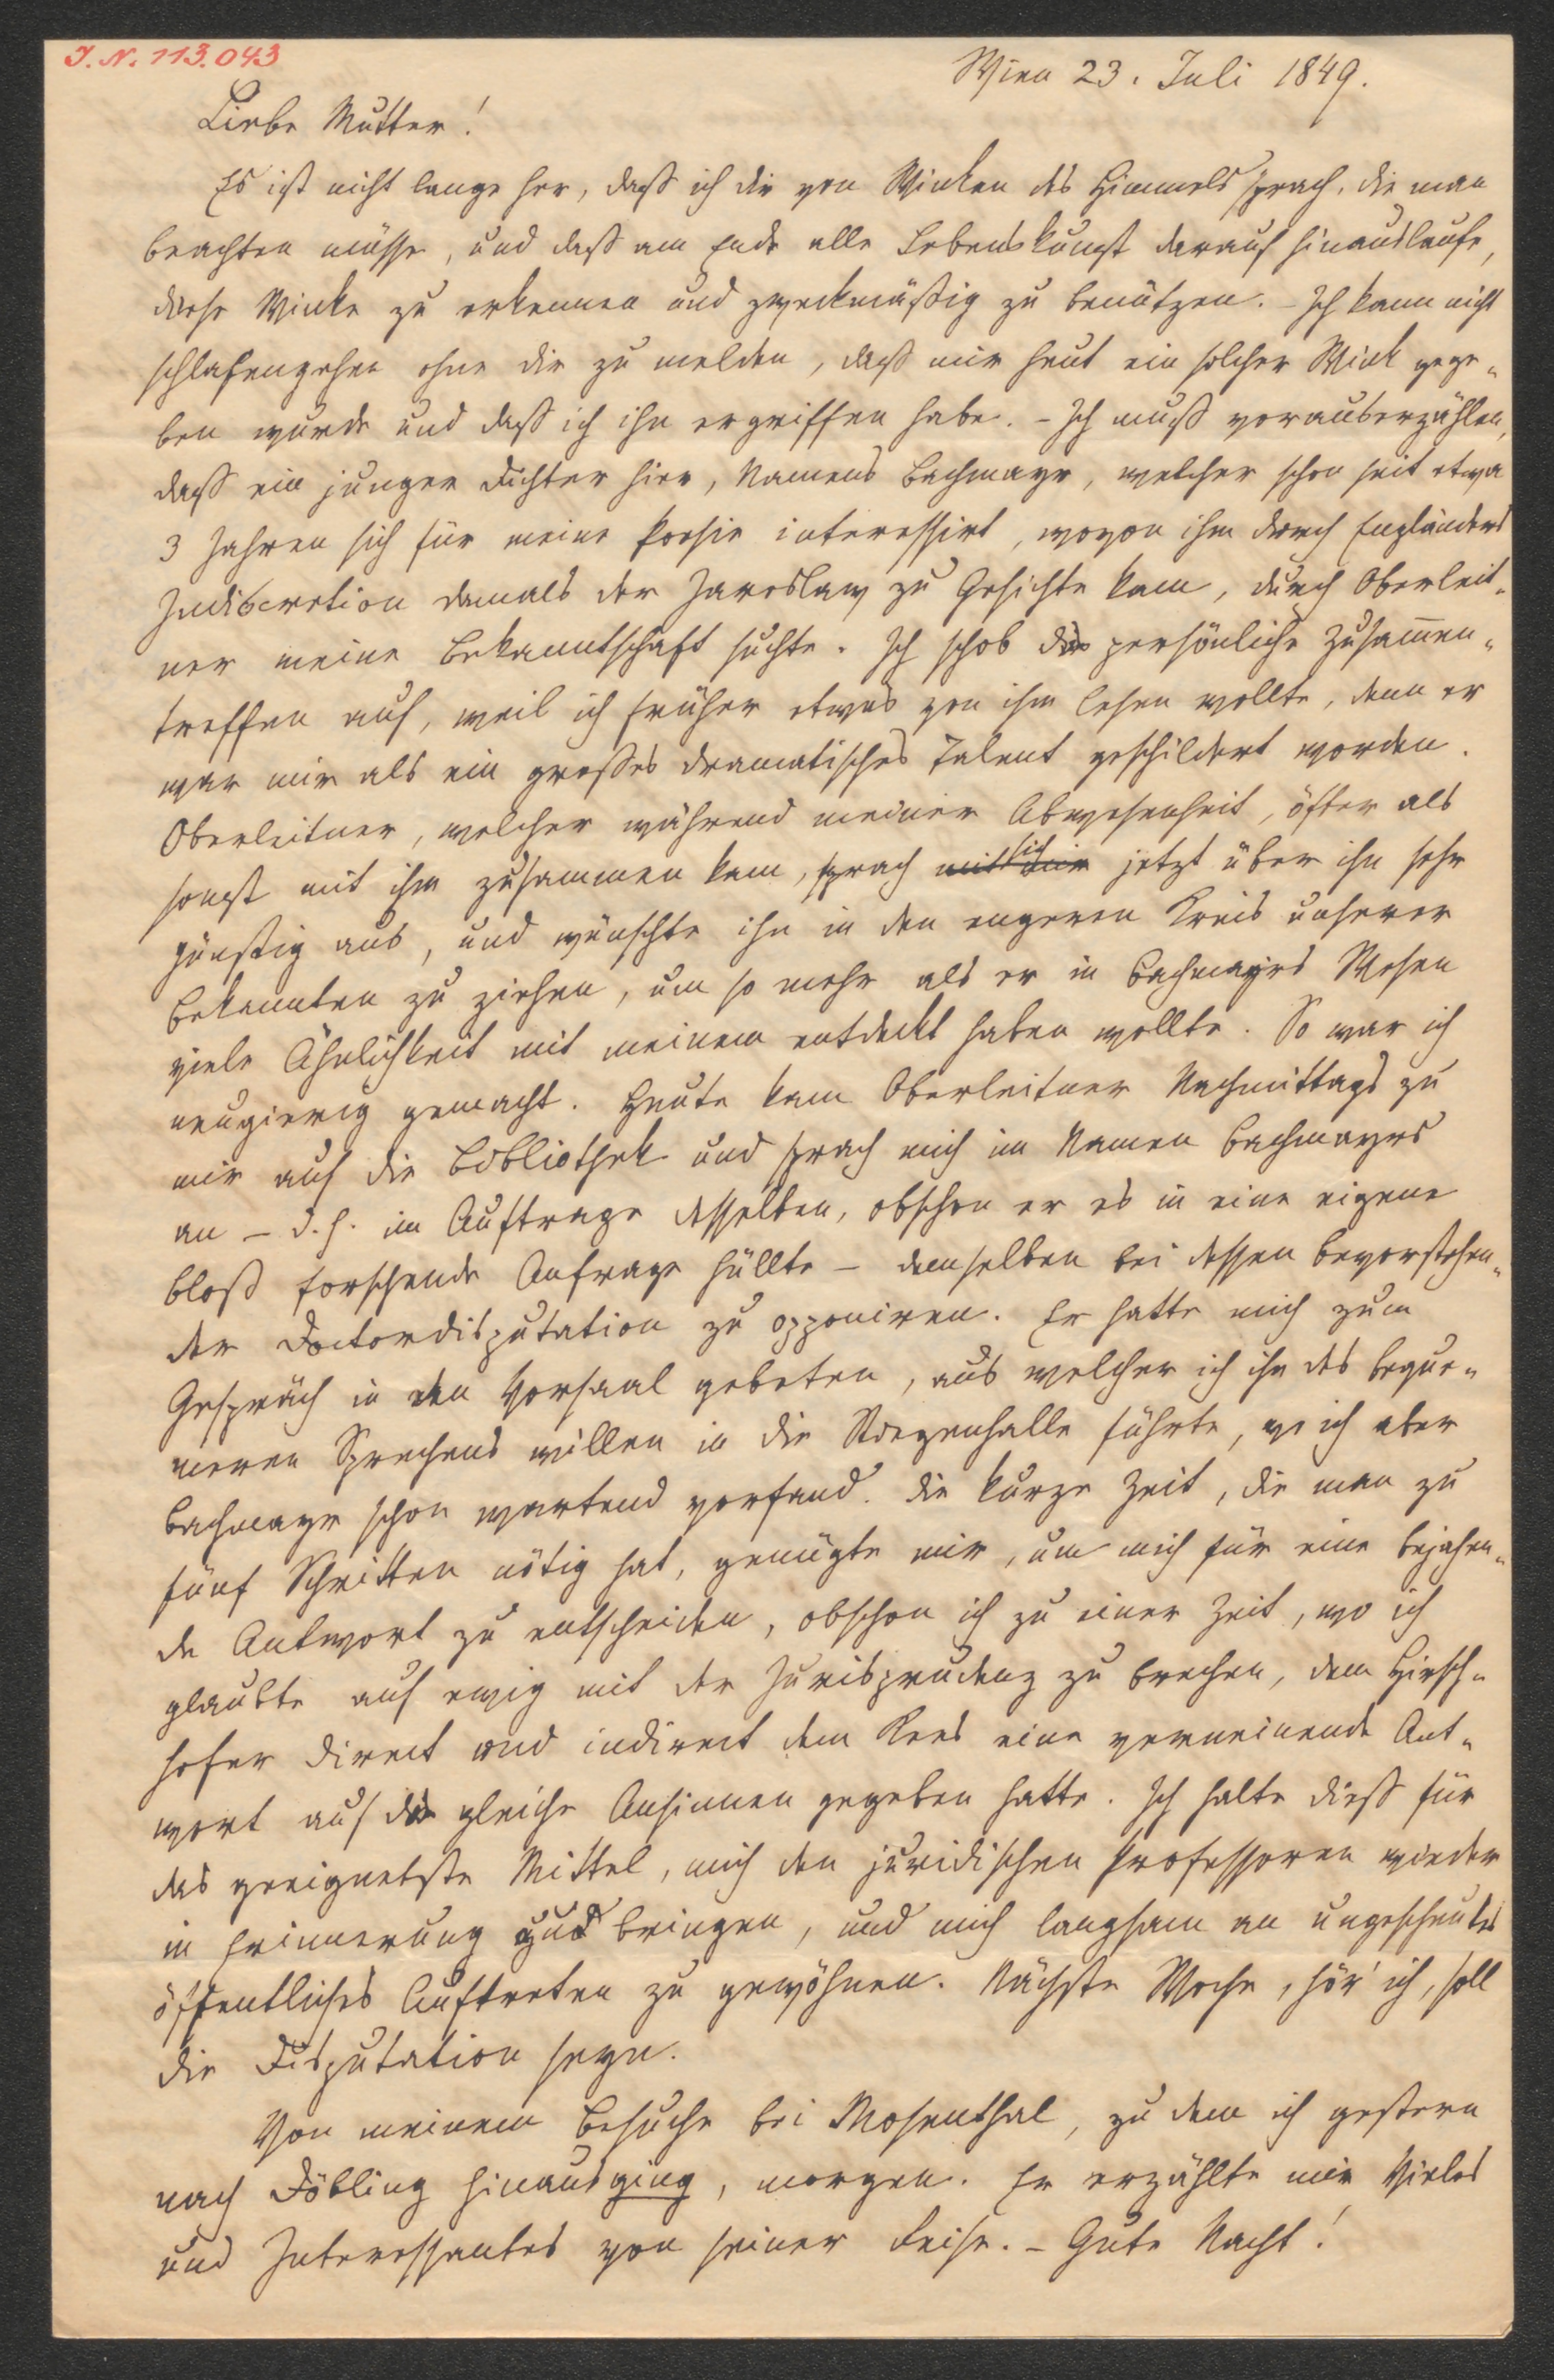 I. N. 113.043
Wien 23. Juli 1849.
Liebe Mutter!
Es ist nicht lange her, daß ich dir von Winken des Himmels sprach, die man
beachten müsse, und daß am Ende alle Lebenskunst darauf hinauslaufe,
diese Winke zu erkennen und zweckmäßig zu benützen. – Ich kann nicht
schlafengehen ohne dir zu melden, daß mir heut ein solcher Wink gege-
ben wurde und daß ich ihn ergriffen habe. – Ich muß vorauserzählen,
daß ein junger Dichter hier, Namens Bachmayr, welcher schon seit etwa
3 Jahren sich für meine Poesie interessirt, wovon ihm durch Engländers
Indiscretion damals der Jaroslaw zu Gesichte kam, durch Oberleit-
ner meine Bekanntschaft suchte. Ich schob das persönliche Zusam̄en-
treffen auf, weil ich früher etwas von ihm lesen wollte, denn er
war mir als ein großes dramatisches Talent geschildert worden.
Oberleitner, welcher während meiner Abwesenheit, öfter als
sonst mit ihm zusammen kam, sprach mit mir sich jetzt über ihn sehr
günstig aus, und wünschte ihn in den engeren Kreis unserer
Bekannten zu ziehen, um so mehr als er in Bachmayrs Wesen
viele Ähnlichkeit mit meinem entdeckt haben wollte. So war ich
neugierig gemacht. Heute kam Oberleitner Nachmittags zu
mir auf die Bibliothek und sprach mich im Namen Bachmayrs
an – d. h. im Auftrage desselben, obschon er es in eine eigene
bloß forschende Anfrage hüllte – demselben bei dessen bevorstehen-
der Doctordisputation zu opponiren. Er hatte mich zum
Gespräch in den Vorsaal gebeten, aus welcher ich ihn des beque-
meren Sprechens willen in die Stiegenhalle führte, wo ich aber
Bachmayr schon wartend vorfand. Die kurze Zeit, die man zu
fünf Schritten nötig hat, genügte mir, um mich für eine bejahen-
de Antwort zu entscheiden, obschon ich zu einer Zeit, wo ich
glaubte auf ewig mit der Jurisprudenz zu brechen, dem Hirsch-
hofer direct und indirect dem Kees eine verneinende Ant-
wort auf das gleiche Ansinnen gegeben hatte. Ich halte dieß für
das geeignetste Mittel, mich den juridischen Professoren wieder
in Erinnerung zu bringen, und mich langsam an ungescheutes
öffentliches Auftreten zu gewöhnen. Nächste Woche, hör' ich, soll
die Disputation seyn.
Von meinem Besuche bei Mosenthal, zu dem ich gestern
nach Döbling hinausging, morgen. Er erzählte mir Vieles
und Interessantes von seiner Reise. – Gute Nacht!